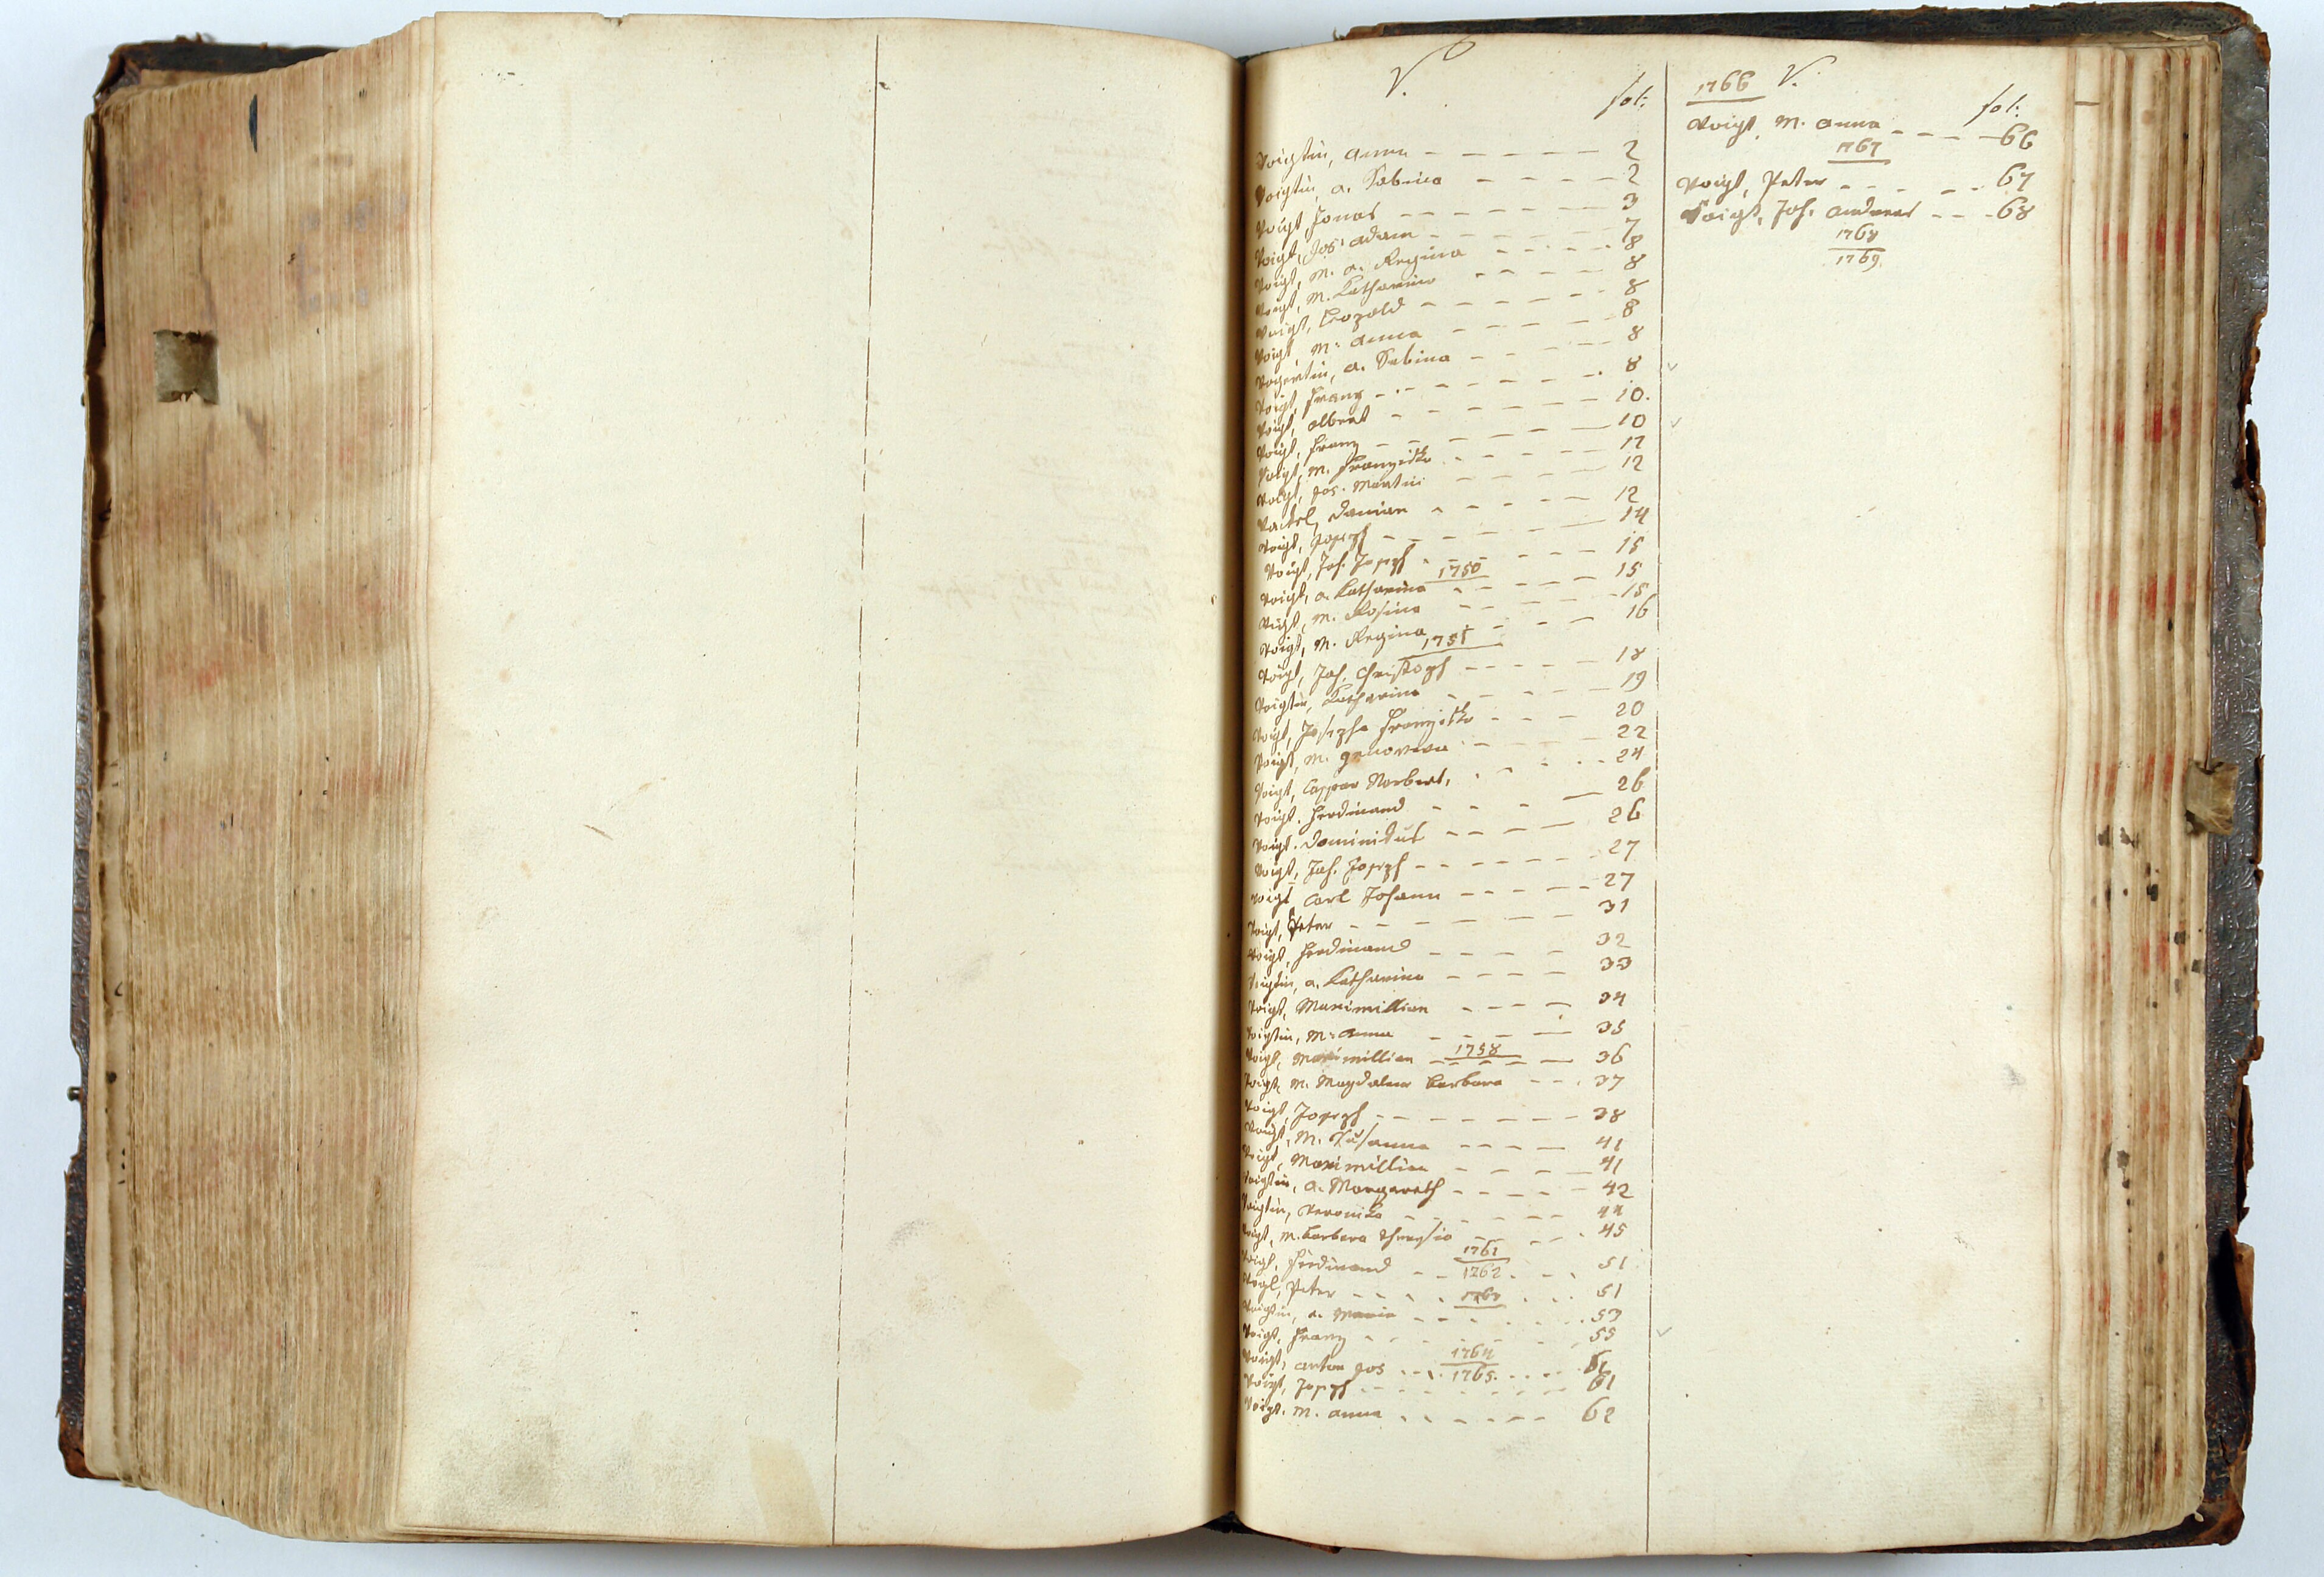 V.
fol:
Voigtin, Anna - - - - - - 2
Voigtin, A. Sabina - - - - - 2
Voigt, Jonas - - - - - - 3
Voigt, Jos: Adam - - - - - 7
Voigt, M. A. Regina - - - - 8
Voigt, M. Catharina - - - - 8
Voigt, Leopold - - - - - - 8
Voigt, M: Anna - - - - - 8
A. Sabina - - - - 8
Voigt, Franz - - - - - - 8
Voigt, Albert - - - - - - 10.
Voigt, Franz - - - - - - 10
Voigt, M. Franziska - - - - - 12
Voigt, Jos. Martin - - - - 12
Damian - - - - - 12
Voigt, Joseph - - - - - - 14
Voigt, Joh. Joseph - - - - - 15
1750
Voigt, A. Catharina - - - - - 15
Voigt, M. Rosina - - - - - 15
Voigt, M. Regina - - - - 16
1751
Voigt, Joh. Christoph - - - - - 18
Voigtin, Catharina - - - - - 19
Voigt, Josepha Franziska - - - 20
Voigt, M. Genoveva - - - - 22
Voigt, Caspar Norbert, - - - - 24
Voigt. Ferdinand - - - - 26
Voigt. Dominikus - - - - 26
Voigt, Joh. Joseph - - - - - - 27
Voigt Carl Johann - - - - - 27
Voigt, Peter - - - - - - 31
Voigt, Ferdinand - - - - 32
Voigtin, A. Catharina - - - - 33
Voigt, Maximillian - - - - 34
Voigtin, M: Anna - - - - 35
Voigt, Maximillian 1758 - - - - 36
Voigt, M. Magdalena Barbara - - - 37
Voigt, Joseph - - - - - - - 38
Voigt, M. Susanna - - - - 41
Voigt, Maximillian - - - - 41
Voigtin, A. Margareth - - - - - 42
Voigtin, Veronika - - - - - - 44
Voigt, M. Barbara Theresia - - - - 45
1761
Voigt, Ferdinand - - 1762. - - - 51
Peter - - - - - - - 51
1763
Voigtin, A. Maria - - - - - - - 53
Voigt, Franz - - - - - - - 55
1764
Voigt, Anton Jos - - - 1765. - - - 61
Voigt, Joseph - - - - - - - 61
Voigt. M. Anna - - - - - - 62
1766 V.
fol:
Voigt, M. Anna - - - - 66
1767
Voigt, Peter - - - - - 67
Voigt, Joh. Andreas - - - 68
1768
1769.